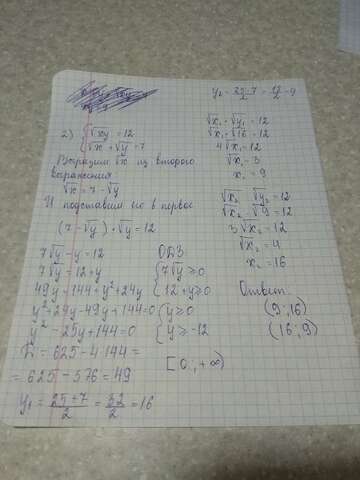 2) { √xy = 12
√x + √y = 7
Выразим √x из второго
выражения
√x = 7 - √y
И подставим его в первое
(7 - √y) · √y = 12
7√y - y = 12
7√y = 12 + y
49y = 144 + y² + 24y
y² + 24y - 49y + 144 = 0
y² - 25y + 144 = 0
D = 625 - 4·144 =
= 625 - 576 = 49
y₁ = (25+7)/2 = 32/2 = 16
ОДЗ
{ 7√y ≥ 0
12 + y ≥ 0
{ y ≥ 0
y ≥ -12
[0; +∞)
y₂ = (25-7)/2 = 18/2 = 9
√x₁ · √y₁ = 12
√x₁ · √16 = 12
4√x₁ = 12
√x₁ = 3
x₁ = 9
√x₂ · √y₂ = 12
√x₂ · √9 = 12
3√x₂ = 12
√x₂ = 4
x₂ = 16
Ответ:
(9; 16)
(16; 9)